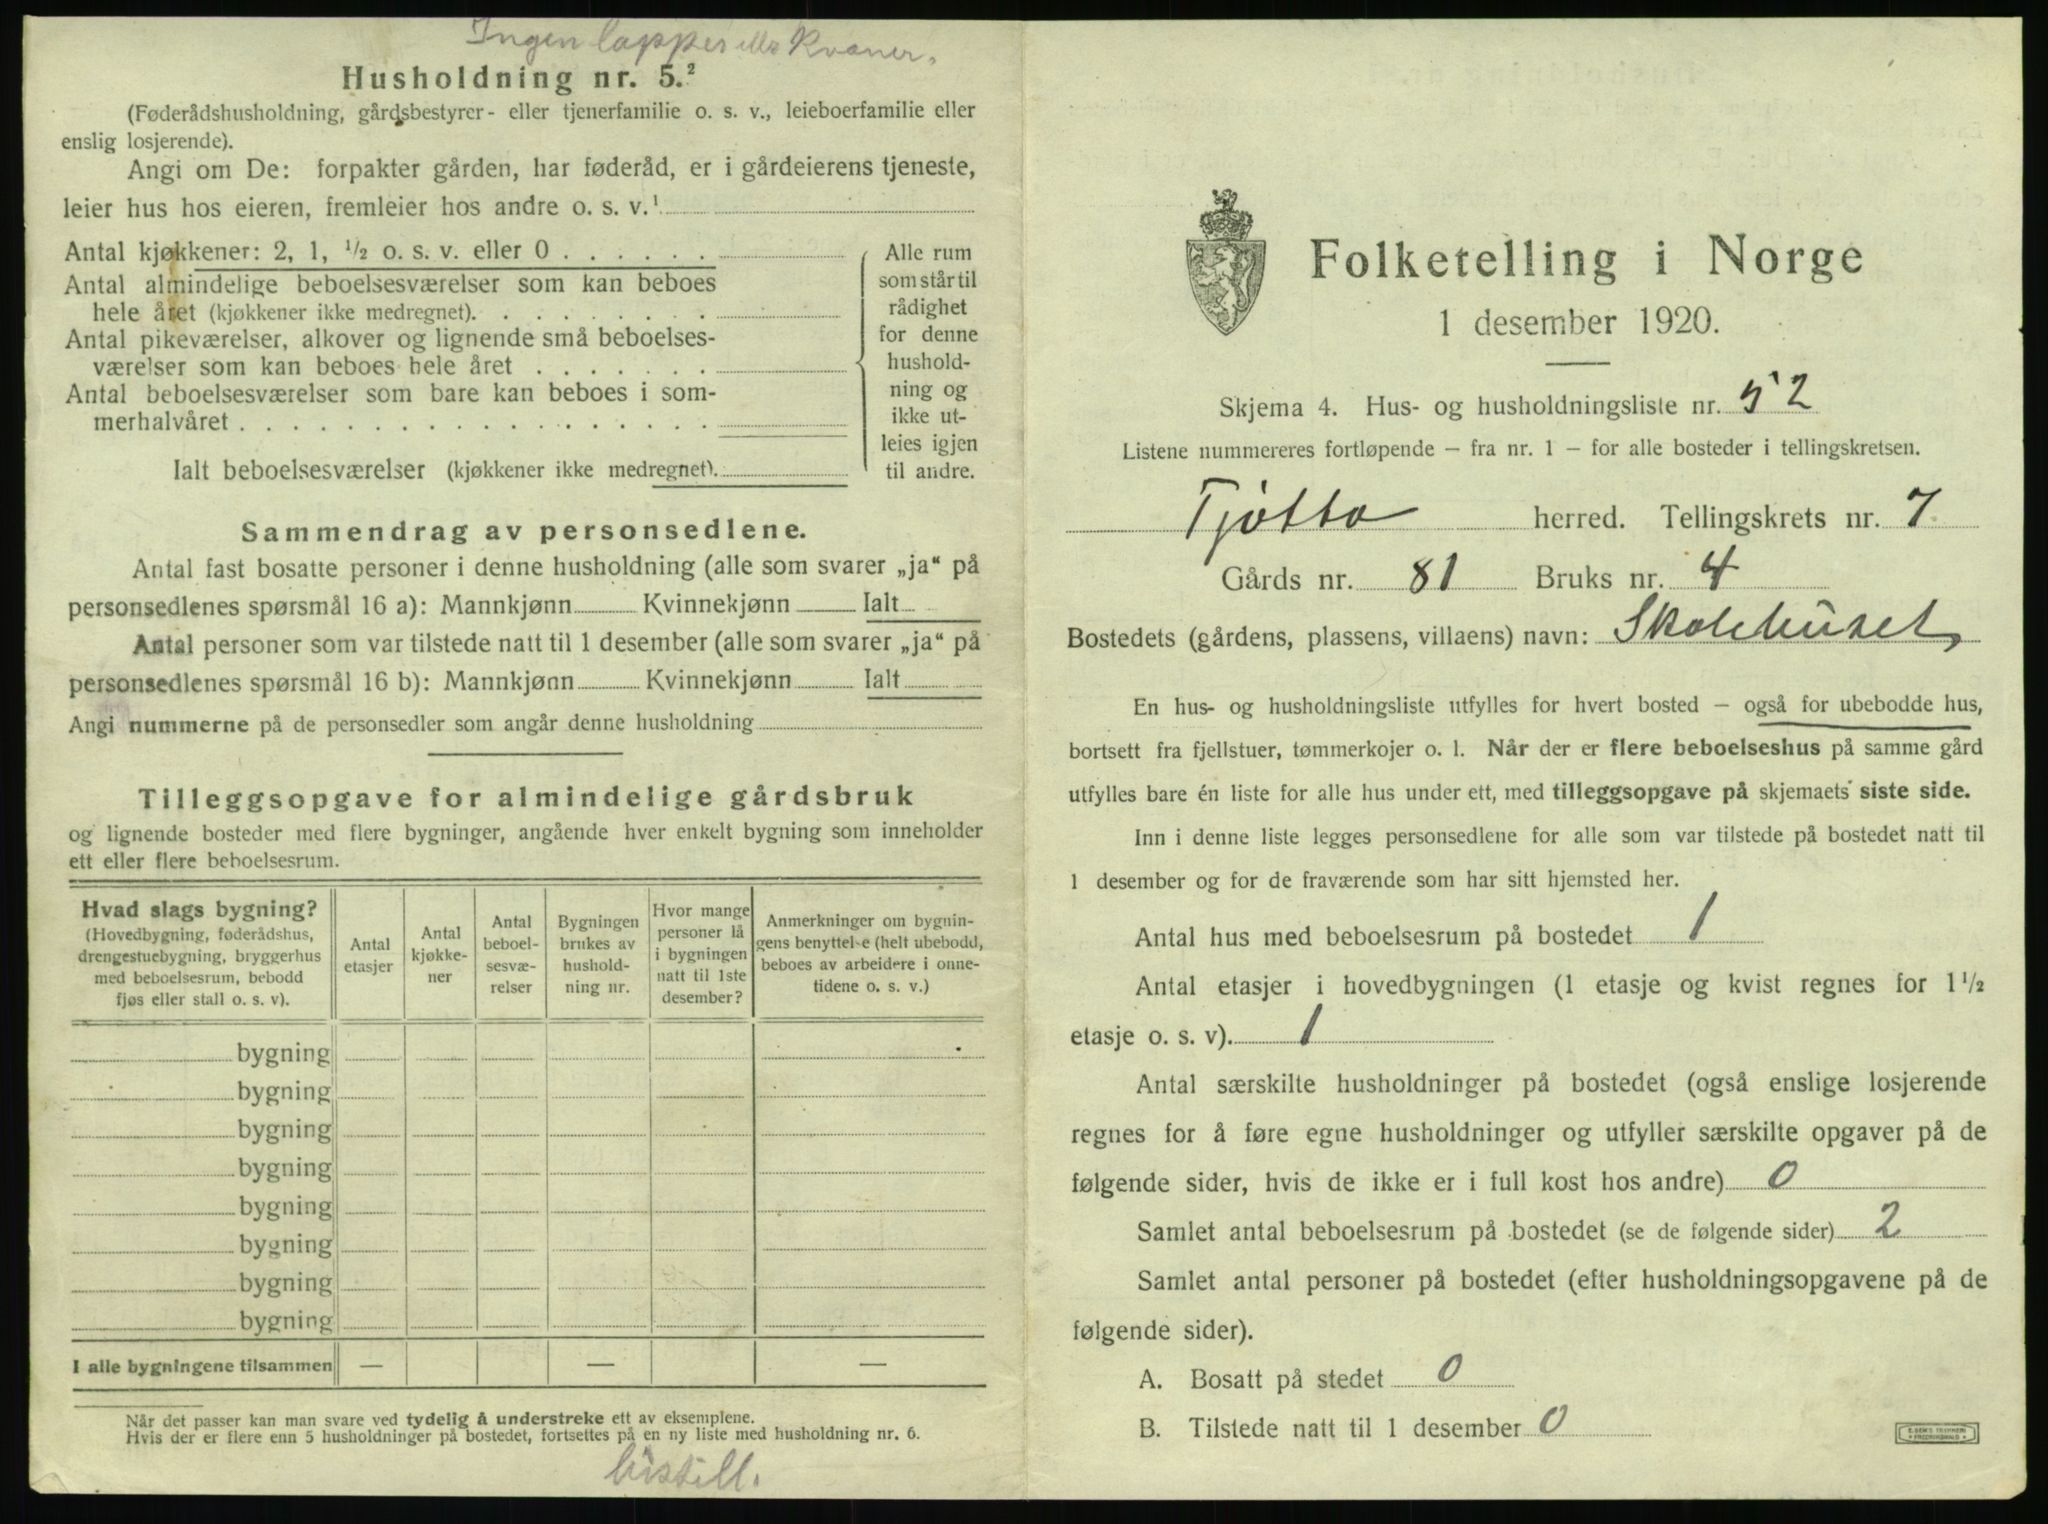 Ingen lapper ells Kvæner.
Husholdning nr. 5.²
(Føderådshusholdning, gårdsbestyrer- eller tjenerfamilie o. s. v., leieboerfamilie eller
enslig losjerende).
Angi om De: forpakter gården, har føderåd, er i gårdeierens tjeneste,
leier hus hos eieren, fremleier hos andre o. s. v.¹
Antal kjøkkener: 2, 1, ½ o. s. v. eller 0 . . . . . .
Antal almindelige beboelsesværelser som kan beboes
hele året (kjøkkener ikke medregnet). . . . . . . . .
Antal pikeværelser, alkover og lignende små beboelses-
værelser som kan beboes hele året . . . . . . .
Antal beboelsesværelser som bare kan beboes i som-
merhalvåret . . . . . . . . . . . . . . . . . .
Ialt beboelsesværelser (kjøkkener ikke medregnet).
Alle rum
som står til
rådighet
for denne
hushold-
ning og
ikke ut-
leies igjen
til andre.
Sammendrag av personsedlene.
Antal fast bosatte personer i denne husholdning (alle som svarer „ja“ på
personsedlenes spørsmål 16 a): Mannkjønn Kvinnekjønn Ialt
Antal personer som var tilstede natt til 1 desember (alle som svarer „ja“ på
personsedlenes spørsmål 16 b): Mannkjønn Kvinnekjønn Ialt
Angi nummerne på de personsedler som angår denne husholdning
Tilleggsopgave for almindelige gårdsbruk
og lignende bosteder med flere bygninger, angående hver enkelt bygning som inneholder
ett eller flere beboelsesrum.
Hvad slags bygning?
(Hovedbygning, føderådshus,
drengestuebygning, bryggerhus
med beboelsesrum, bebodd
fjøs eller stall o. s. v).
Antal
etasjer
Antal
kjøkke-
ner
Antal
beboel-
sesvæ-
relser
Bygningen
brukes av
hushold-
ning nr.
Hvor mange
personer lå
i bygningen
natt til 1ste
desember?
Anmerkninger om bygnin-
gens benyttelse (helt ubebodd,
beboes av arbeidere i onne-
tidene o. s. v.)
bygning
bygning
bygning
bygning
bygning
bygning
bygning
bygning
I alle bygningene tilsammen — — —
Når det passer kan man svare ved tydelig å understreke ett av eksemplene.
Hvis der er flere enn 5 husholdninger på bostedet, fortsettes på en ny liste med husholdning nr. 6.
Folketelling i Norge
1 desember 1920.
Skjema 4. Hus- og husholdningsliste nr. 52
Listene nummereres fortløpende – fra nr. 1 – for alle bosteder i tellingskretsen.
Tjøtta herred. Tellingskrets nr. 7
Gårds nr. 81 Bruks nr. 4
Bostedets (gårdens, plassens, villaens) navn: Skolehuset
En hus- og husholdningsliste utfylles for hvert bosted – også for ubebodde hus,
bortsett fra fjellstuer, tømmerkojer o. l. Når der er flere beboelseshus på samme gård
utfylles bare én liste for alle hus under ett, med tilleggsopgave på skjemaets siste side.
Inn i denne liste legges personsedlene for alle som var tilstede på bostedet natt til
1 desember og for de fraværende som har sitt hjemsted her.
Antal hus med beboelsesrum på bostedet 1
Antal etasjer i hovedbygningen (1 etasje og kvist regnes for 1½
etasje o. s. v). 1
Antal særskilte husholdninger på bostedet (også enslige losjerende
regnes for å føre egne husholdninger og utfyller særskilte opgaver på de
følgende sider, hvis de ikke er i full kost hos andre) 0
Samlet antal beboelsesrum på bostedet (se de følgende sider) 2
Samlet antal personer på bostedet (efter husholdningsopgavene på de
følgende sider).
A. Bosatt på stedet 0
B. Tilstede natt til 1 desember 0